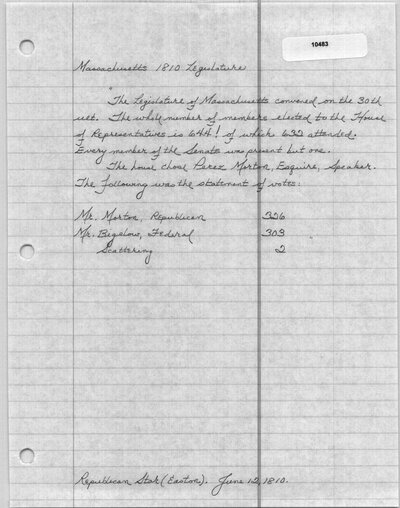 10483
Massachusetts 1810 Legislature
"The Legislature of Massachusetts convened on the 30th
ult. The whole number of members elected to the House
of Representatives is 644! of which 632 attended.
Every member of the Senate was present but one.
The house chose Perez Morton, Esquire, Speaker.
The following was the statement of votes:
Mr. Morton, Republican 326
Mr. Bigelow, Federal 303
Scattering 2
Republican Star (Easton). June 12, 1810.